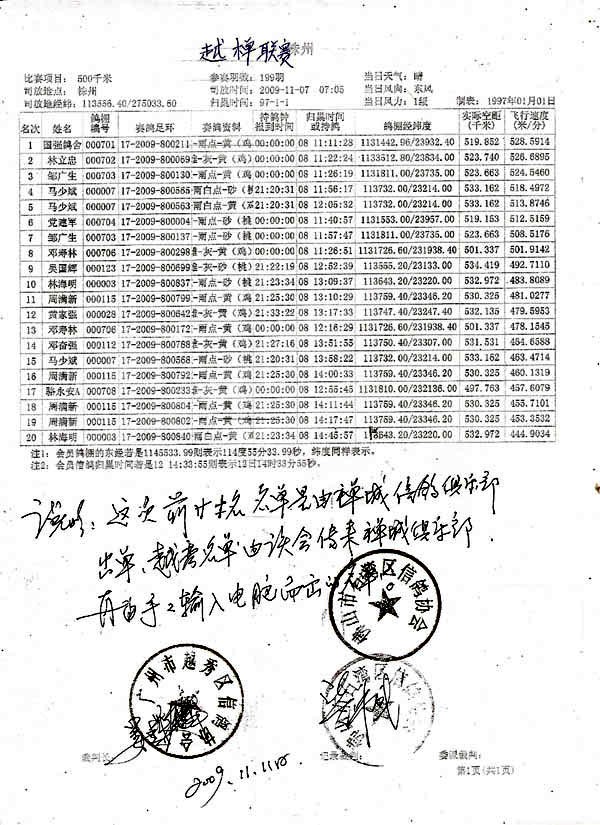 越禅联赛 徐州
比赛项目: 500千米 参赛羽数: 199羽 当日天气: 晴
司放地点: 徐州 司放时间: 2009-11-07 07:05 当日风向: 东风
司放地经纬: 113556.40/275033.50 归巢时间: 97-1-1 当日风力: 1级 制表: 1997年01月01日
名次 姓名 鸽棚编号 赛鸽足环 赛鸽资料 持鸽钟报到时间 归巢时间或持鸽 鸽棚经纬度 实际空距(千米) 飞行速度(米/分)
1 国强鸽舍 000701 17-2009-800211 -雨点-黄 (鸡) 00:00:00 08 11:11:28 1131442.96/23932.40 519.852 528.5914
2 林立忠 000702 17-2009-800059 -灰-黄 (鸡) 00:00:00 08 11:22:24 1133512.80/23834.00 523.740 526.6895
3 邹广生 000703 17-2009-800130 -雨点-黄 (鸡) 00:00:00 08 11:26:19 1131811.00/23735.00 523.663 524.5460
4 马少斌 000007 17-2009-800565 -雨白点-砂 21:20:31 08 11:56:17 113732.00/23214.00 533.162 518.4972
5 马少斌 000007 17-2009-800563 -雨点-黄 21:20:31 08 12:05:32 113732.00/23214.00 533.162 513.8746
6 党建军 000704 17-2009-800004 -雨点-砂 (桃) 00:00:00 08 11:40:57 1131553.00/23957.00 519.153 512.5159
7 邹广生 000703 17-2009-800137 -雨点-砂 (桃) 00:00:00 08 11:57:47 1131811.00/23735.00 523.663 508.5176
8 邓寿林 000706 17-2009-800298 -灰-黄 (鸡) 00:00:00 08 11:26:51 1131726.60/231938.40 501.337 501.9142
9 吴国辉 000123 17-2009-800699 -灰-砂 (桃) 21:22:19 08 12:52:39 113555.20/23133.00 534.419 492.7110
10 林海明 000003 17-2009-800837 -雨点-砂 (桃) 21:23:34 08 13:09:37 113643.20/23220.00 532.972 483.8089
11 周满新 000115 17-2009-800799 -雨点-黄 (鸡) 21:25:30 08 13:10:29 113759.40/23346.20 530.325 481.0277
12 黄家强 000028 17-2009-800642 -雨点-黄 (鸡) 21:33:22 08 13:17:33 113747.40/23247.40 532.135 479.5953
13 邓寿林 000706 17-2009-800172 -雨点-黄 (鸡) 00:00:00 08 12:16:29 1131726.60/231938.40 501.337 478.1545
14 邓奋强 000112 17-2009-800768 -灰-黄 (鸡) 21:27:16 08 13:51:55 113750.40/23307.00 531.531 464.6588
15 马少斌 000007 17-2009-800568 -雨点-砂 (桃) 21:20:31 08 13:58:22 113732.00/23214.00 533.162 463.4714
16 周满新 000115 17-2009-800792 -雨点-黄 (鸡) 21:25:30 08 14:00:33 113759.40/23346.20 530.325 460.1319
17 骆永安A 000708 17-2009-800233 -灰-黄 (鸡) 00:00:00 08 12:55:45 1131810.00/232136.00 497.763 457.6079
18 周满新 000115 17-2009-800802 -雨点-黄 (鸡) 21:25:30 08 14:11:44 113759.40/23346.20 530.325 455.7101
19 周满新 000115 17-2009-800804 -雨点-黄 (鸡) 21:25:30 08 14:17:49 113759.40/23346.20 530.325 453.3532
20 林海明 000003 17-2009-800840 -雨白点-黄 21:23:34 08 14:45:57 113643.20/23220.00 532.972 444.9034
注1: 会员鸽棚的东经若是1145533.99则表示114度55分33.99秒, 纬度同样表示。
注2: 会员信鸽归巢时间若是12 14:33:55则表示12日14时33分55秒。
说明: 这次前廿名名单是由禅城信鸽俱乐部
出单、越秀名单由该会传来禅城俱乐部
再由手工输入电脑而出
广州市越秀区信鸽协会
裁判长: 记录裁判: 委派裁判:
2009.11.11日
第1页(共1页)